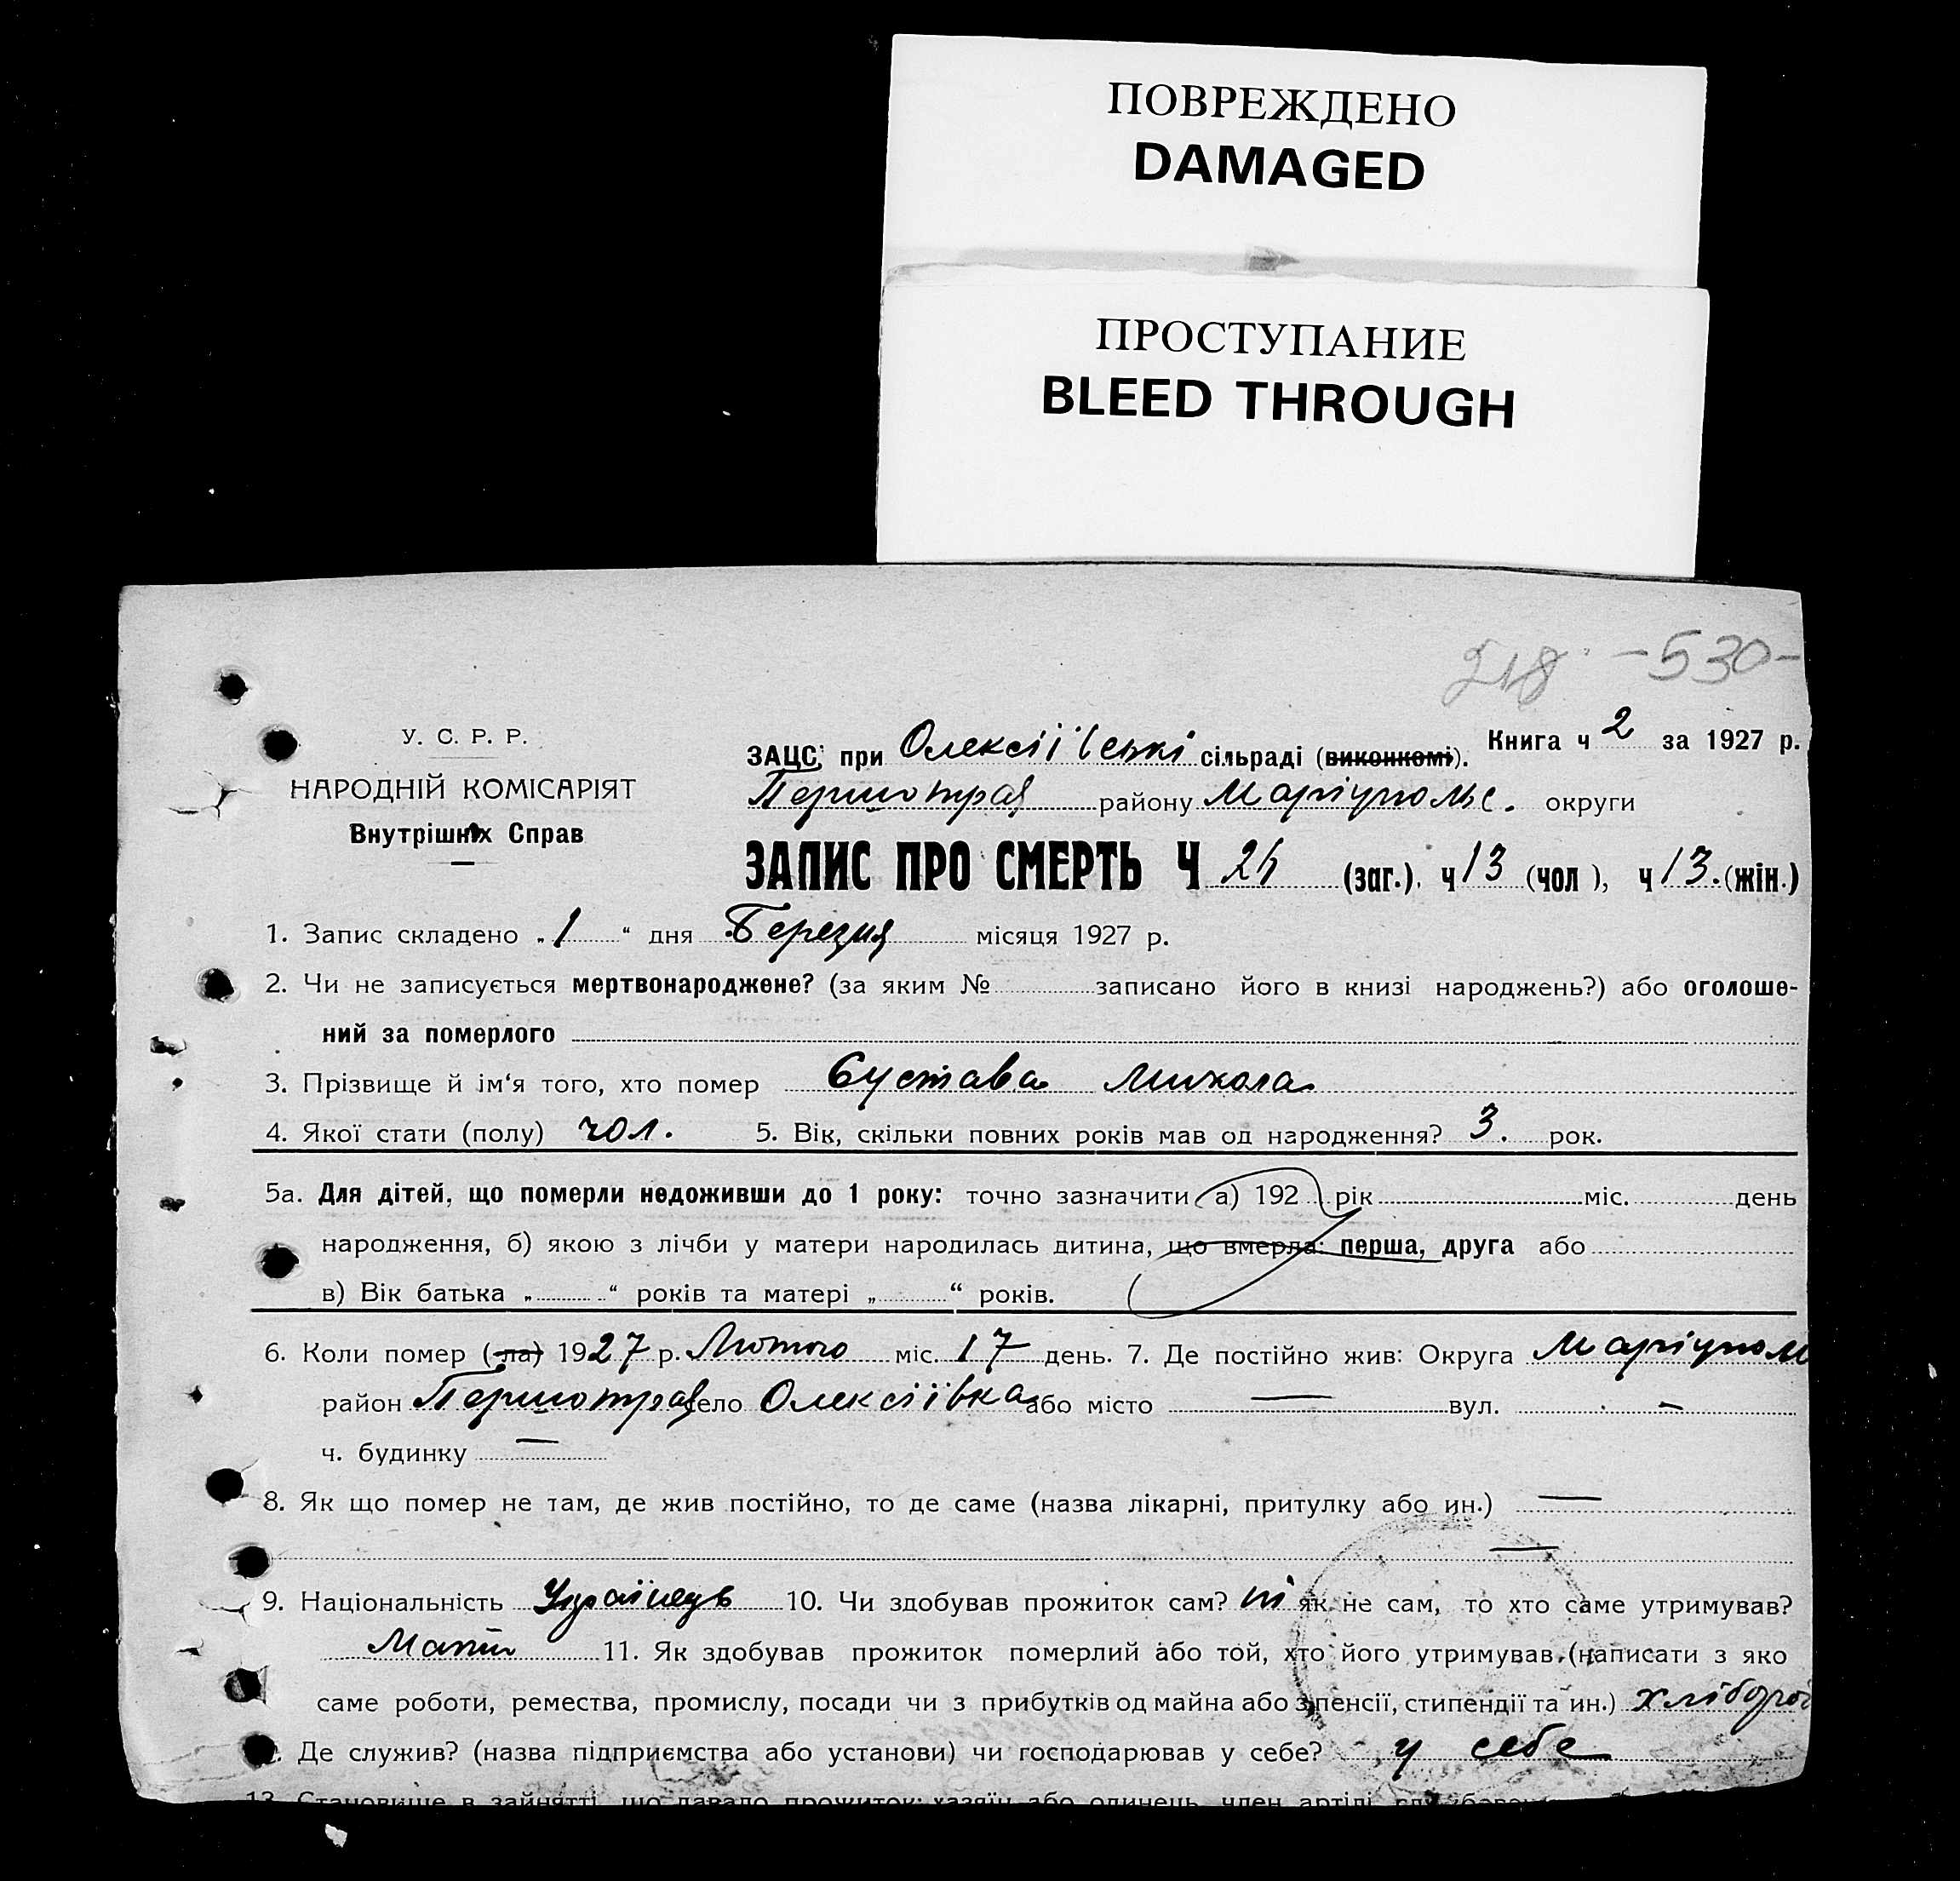 ПОВРЕЖДЕНО
DAMAGED
ПРОСТУПАНИЕ
BLEED THROUGH
218 -530-
У. С. Р. Р.
НАРОДНІЙ КОМІСАРІЯТ
Внутрішніх Справ
Книга ч 2 за 1927 р.
ЗАЦС при Олексіївські сільраді (виконкомі).
Першотрав району Маріупольс. округи
ЗАПИС ПРО СМЕРТЬ Ч (заг.). ч 13 (чол), ч 13. (жін.)
1. Запис складено „1“ дня Березня місяця 1927 р.
2. Чи не записується мертвонароджене? (за яким № записано його в книзі народжень?) або оголоше-
ний за померлого
3. Прізвище й ім'я того, хто помер Сустава Микола
4. Якої стати (полу) чол. 5. Вік, скільки повних років мав од народження? 3. рок.
5а. Для дітей, що померли недоживши до 1 року: точно зазначити а) 192 рік міс. день
народження, б) якою з лічби у матери народилась дитина, що вмерла: перша, друга або
в) Вік батька „ “ років та матері „ “ років.
6. Коли помер (ла) 1927 р. Лютого міс. 17 день. 7. Де постійно жив: Округа Маріупол
район Першотрав село Олексіївка або місто — вул. —
ч. будинку —
8. Як що помер не там, де жив постійно, то де саме (назва лікарні, притулку або ин.) —
—
9. Національність Українець 10. Чи здобував прожиток сам? ні як не сам, то хто саме утримував?
Мати 11. Як здобував прожиток померлий або той, хто його утримував (написати з яко
саме роботи, ремества, промислу, посади чи з прибутків од майна або з пенсії, стипендії та ин.) хлібороб
Де служив? (назва підприємства або установи) чи господарював у себе? у себе
13. Становище в зайнятті, що давало прожиток: хазяїн або одинець, член артілі,